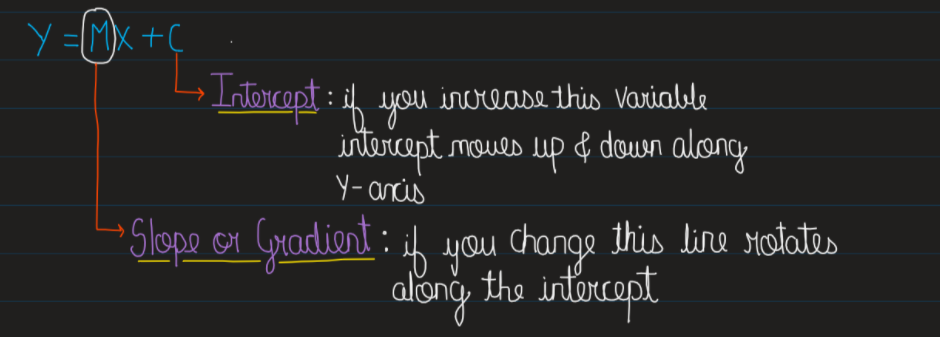 Y = MX + C
Intercept : if you increase this variable
intercept moves up & down along
Y-axis
Slope or Gradient : if you change this line rotates
along the intercept